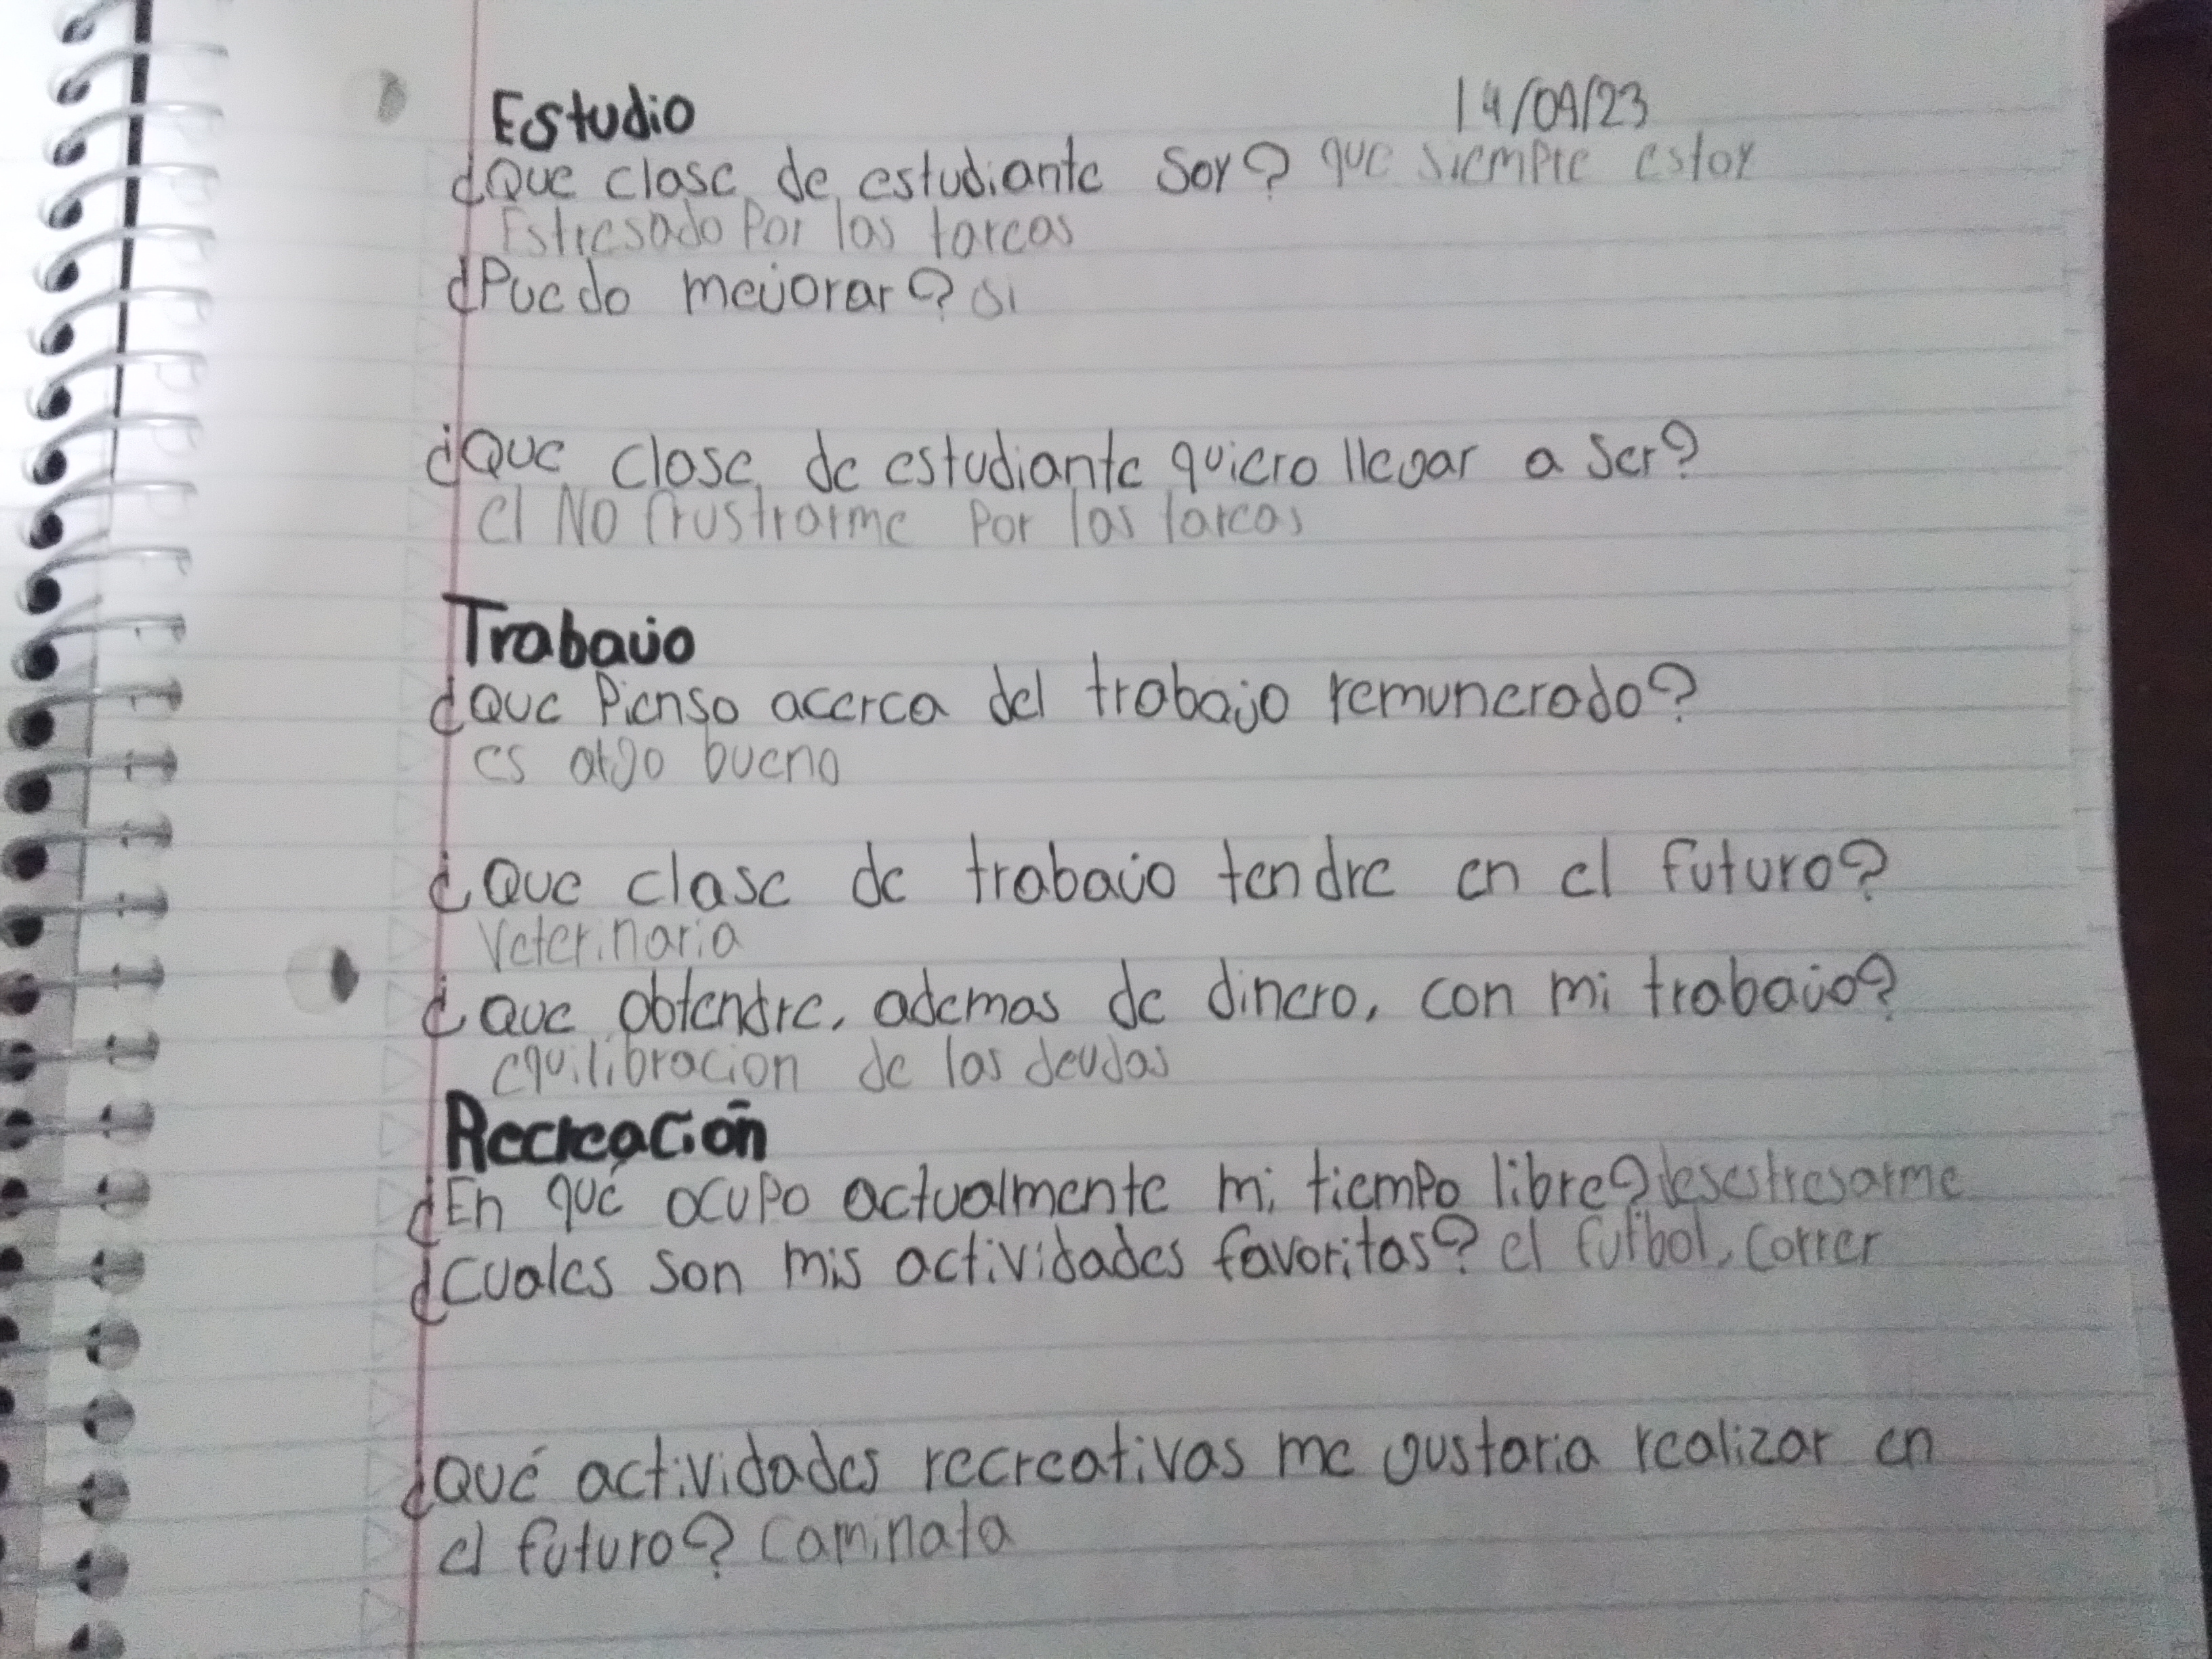 Estudio 14/09/23
¿Que clase de estudiante soy? que siempre estoy
Estresado Por las tareas
¿Puedo mejorar? si
¿Que clase de estudiante quiero llegar a ser?
el No frustrarme por las tareas
Trabajo
¿Que Pienso acerca del trabajo remunerado?
es algo bueno
¿Que clase de trabajo tendre en el futuro?
Veterinaria
¿que obtendre, ademas de dinero, con mi trabajo?
equilibracion de las deudas
Recreación
¿En qué ocupo actualmente mi tiempo libre? desestresarme
¿Cuales son mis actividades favoritas? el futbol, correr
¿Qué actividades recreativas me gustaria realizar en
el futuro? Caminata